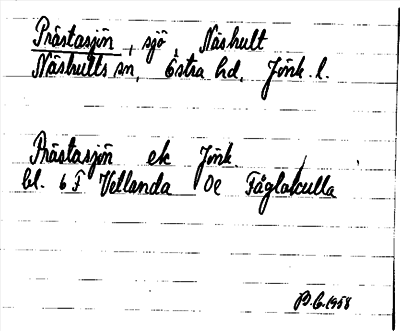 Prästasjön, sjö, Näshult
Näshults sn, Östra hd, Jönk. l.
Prästasjön ek Jönk.
bl. 6F Vetlanda 0e Fåglakulla
1958